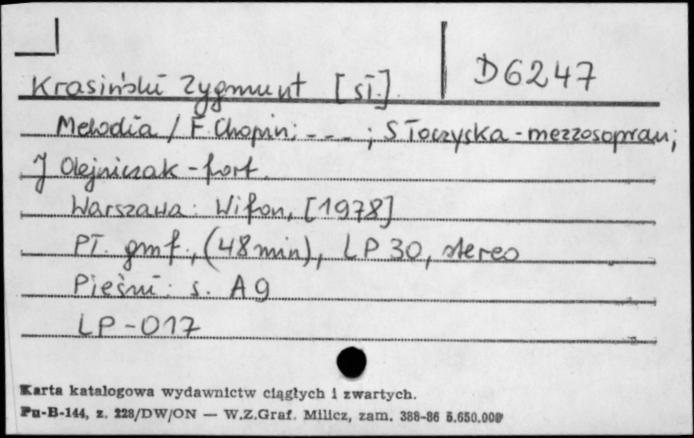 D6247
Krasiński Zygmunt [sł.]
Melodia / F. Chopin; - - - ; S Toczyska - mezzosopran;
J Olejniczak - fort.
Warszawa: Wifon, [1978]
Pł. gmf., (48 min), LP 30, stereo
Pieśni: s. A9
LP-017
Karta katalogowa wydawnictw ciągłych i zwartych.
Pu-B-144, z. 228/DW/ON — W.Z.Graf. Milicz, zam. 388-86 5.650.000